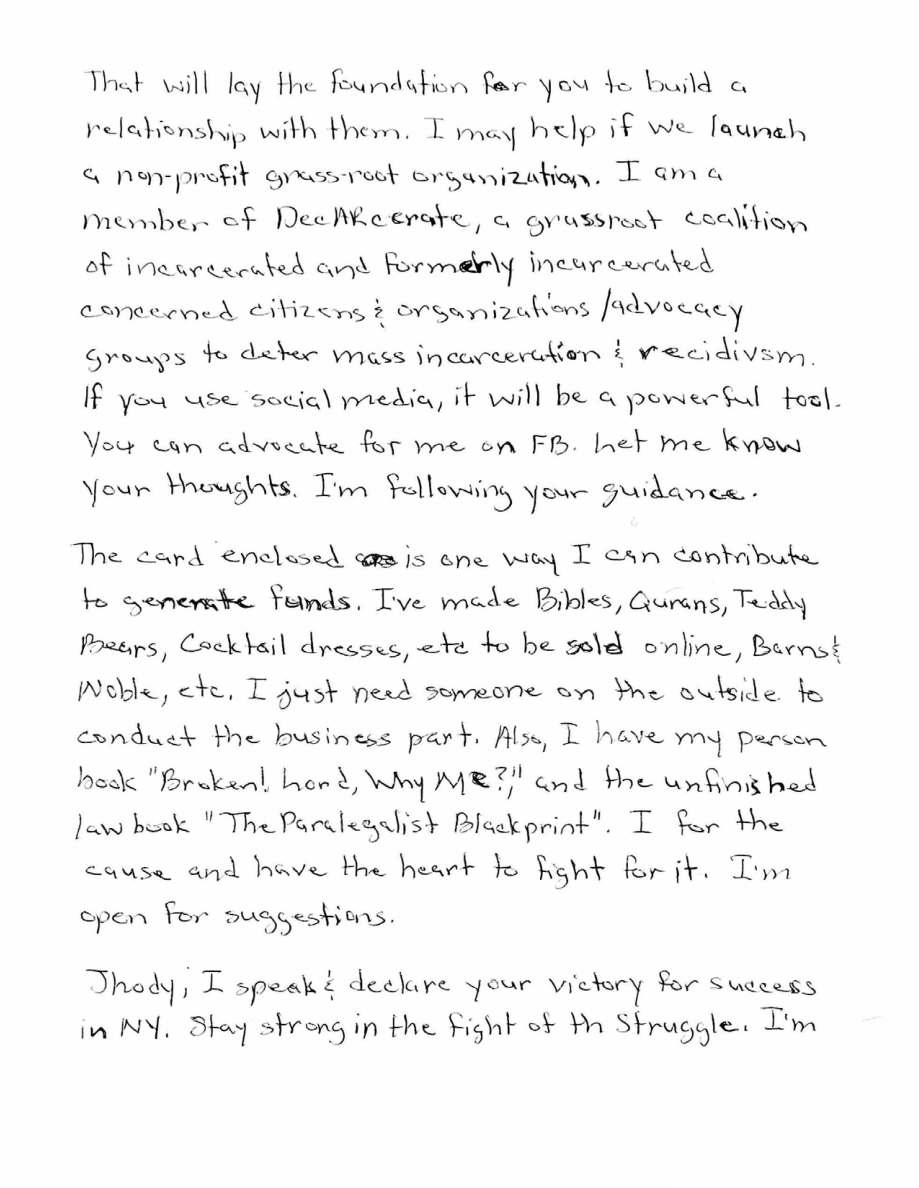 That will lay the foundation for you to build a
relationship with them. I may help if we launch
a non-profit grass-root organization. I am a
member of DecARcerate, a grassroot coalition
of incarcerated and formerly incarcerated
concerned citizens & organizations/advocacy
groups to deter mass incarceration & recidivsm.
If you use social media, it will be a powerful tool.
You can advocate for me on FB. Let me know
your thoughts. I'm following your guidance.
The card enclosed is one way I can contribute
to generate funds. I've made Bibles, Qurans, Teddy
Bears, Cocktail dresses, etc to be sold online, Barns &
Noble, etc. I just need someone on the outside to
conduct the business part. Also, I have my person
book "Broken! Lord, Why Me?," and the unfinished
law book "The Paralegalist Blackprint". I for the
cause and have the heart to fight for it. I'm
open for suggestions.
Jhody, I speak & declare your victory for success
in NY. Stay strong in the fight of th Struggle. I'm